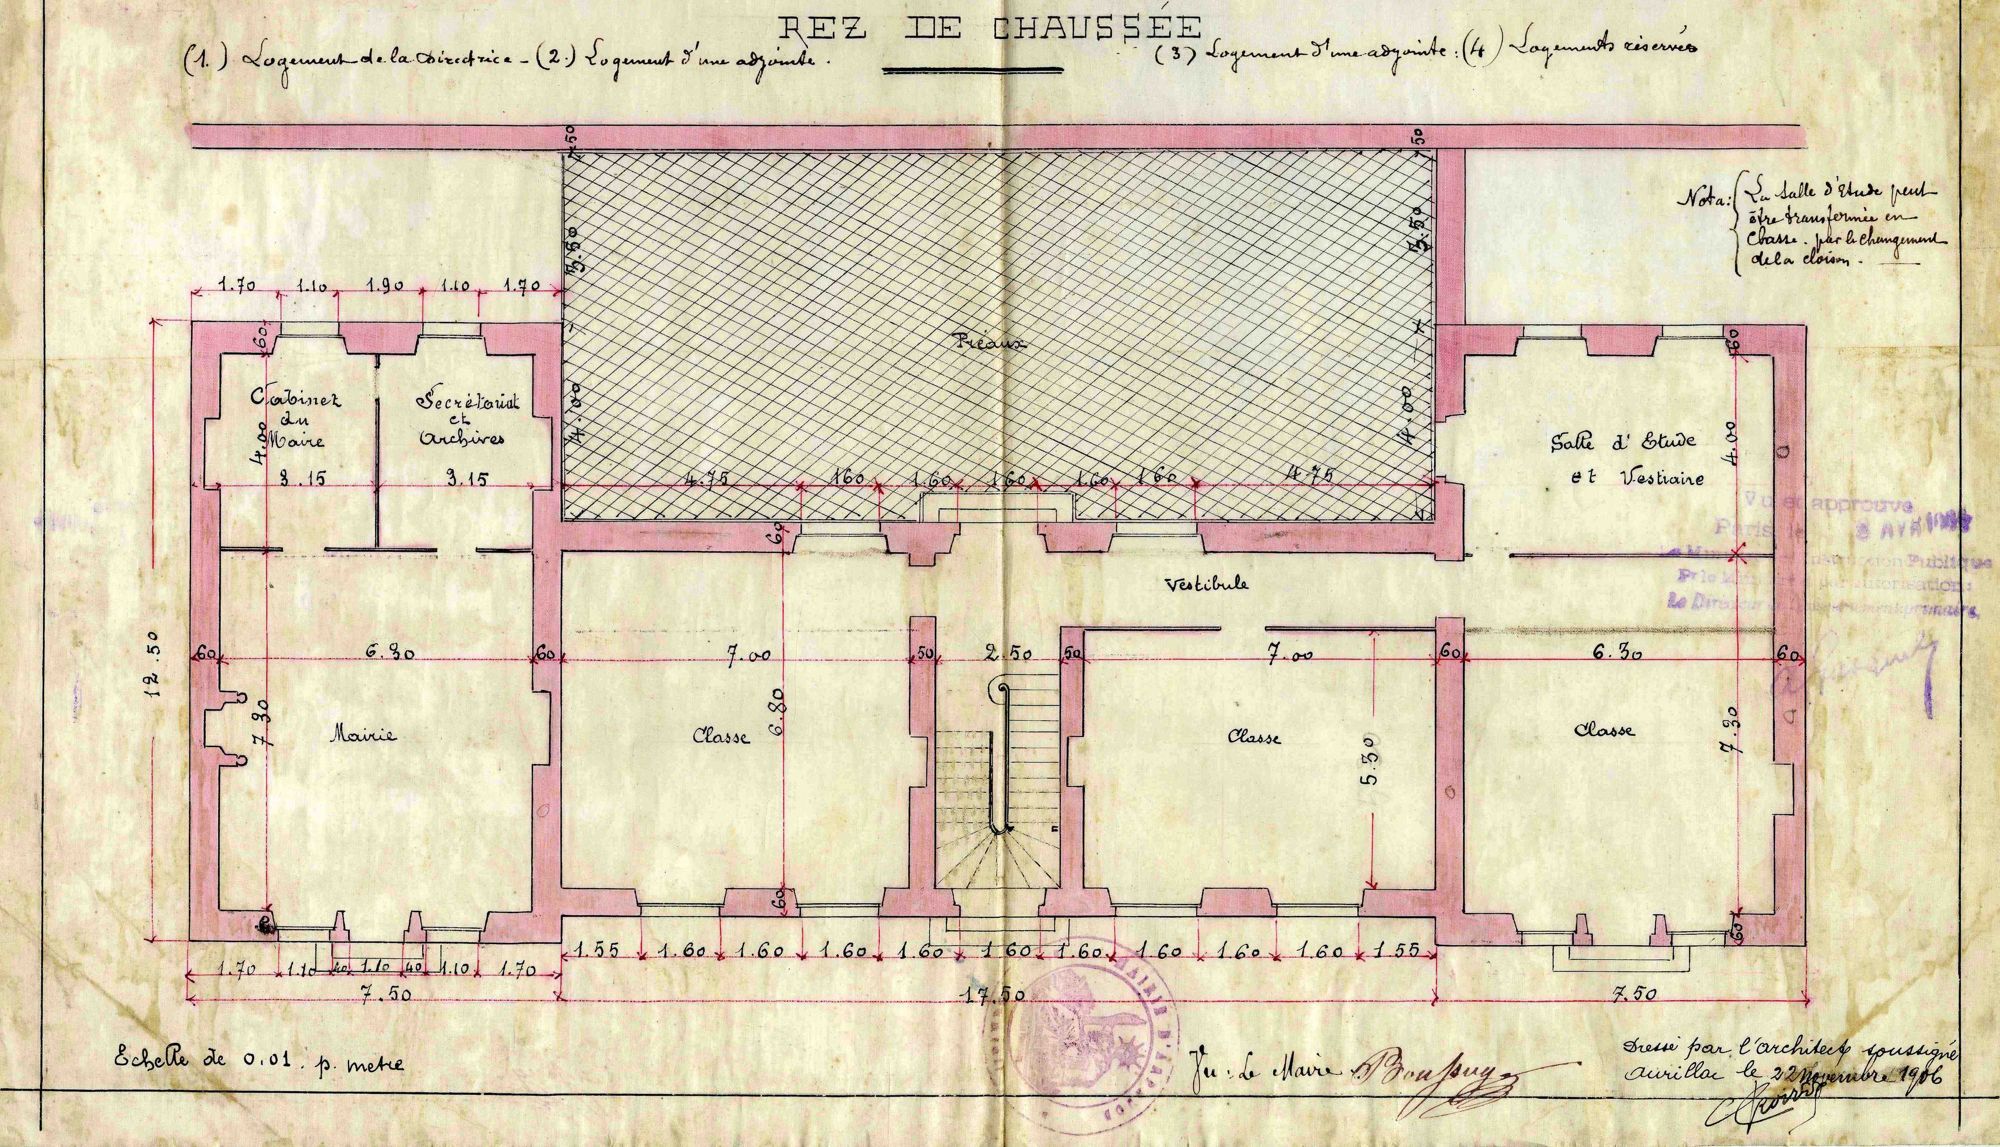 REZ DE CHAUSSÉE
(1.) Logement de la Directrice - (2.) Logement d'une adjointe.
(3) Logement d'une adjointe : (4) Logements réservés
Nota: La Salle d'Etude peut
être transformée en
Classe. par le changement
de la cloison.
50
50
3.50
3.50
1.70 1.10 1.90 1.10 1.70
60
60
Préaux
Cabinet
du
Maire
Secrétariat
et
Archives
4.00
4.00
4.00
4.00
Salle d'Etude
et Vestiaire
3.15
3.15
4.75 160 1.60 1.60 1.60 1.60 4.75
Vu et approuvé
Paris, le
60
Vestibule
12.50
60 6.30 60 7.00 50 2.50 50 7.00 60 6.30 60
7.30
Mairie
Classe
6.80
Classe
5.30
Classe
7.30
60
60
60
1.70 1.10 40 1.10 40 1.10 1.70
1.55 1.60 1.60 1.60 1.60 1.60 1.60 1.60 1.60 1.60 1.55
7.50
17.50
7.50
Echelle de 0.01. p. metre
MAIRIE D'
Vu: Le Maire
Dressé par l'architecte soussigné
Aurillac le 22 novembre 1906